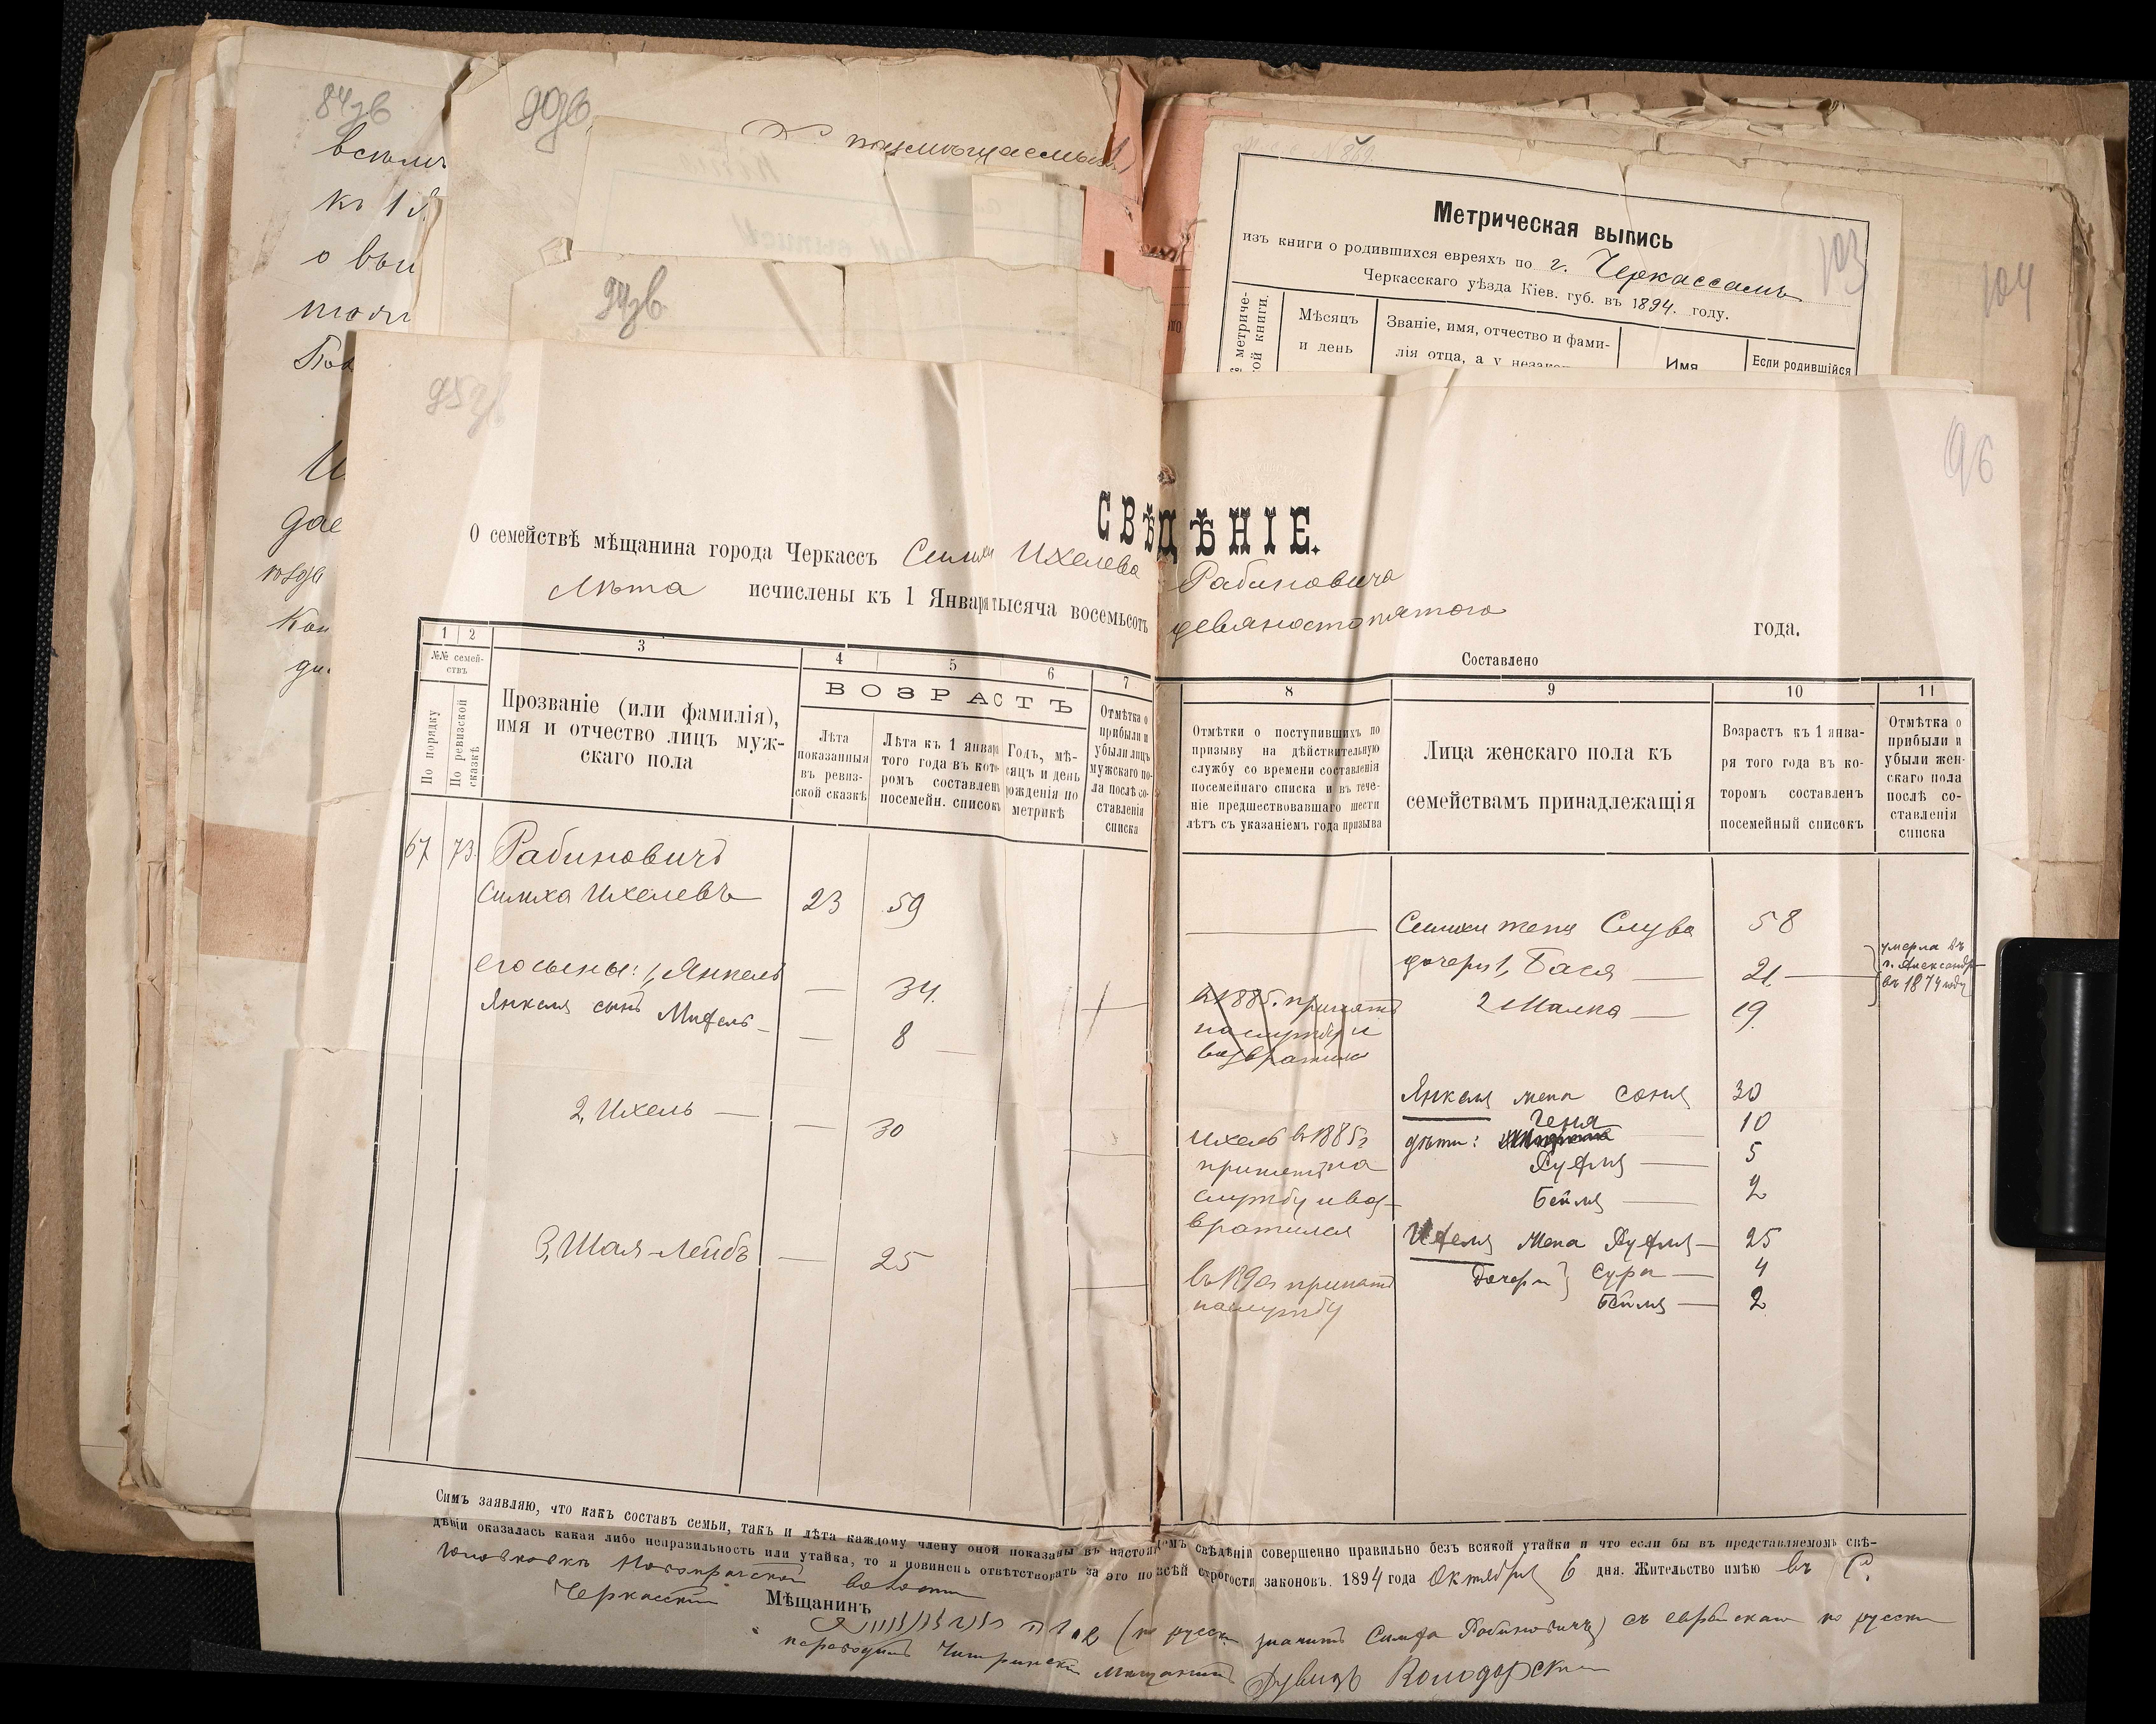 84зв
к 1
о вы
90зв
94зв
Метрическая выпись
изъ книги о родившихся евреяхъ по г. Черкассамъ
Черкасскаго уѣзда Кіев. губ. въ 1894. году.
103
104
метриче-
ой книги.
Мѣсяцъ
и день
Званіе, имя, отчество и фами-
лія отца, а у незакон
Имя
Если родившійся
95зв
96
СВѢДѢНІЕ.
О семействѣ мѣщанина города Черкассъ Симхи Ихелева Рабиновича
Лѣта исчислены къ 1 Января тысяча восемьсотъ девяностопятого года.
Составлено
1 2 3 4 5 6 7 8 9 10 11
№№ семей-
ствъ
По порядку
По ревизской
сказкѣ
Прозваніе (или фамилія),
имя и отчество лицъ муж-
скаго пола
ВОЗРАСТЪ
Лѣта
показанныя
въ ревиз-
ской сказкѣ
Лѣта къ 1 января
того года въ кото-
ромъ составленъ
посемейн. списокъ
Годъ, мѣ-
сяцъ и день
рожденія по
метрикѣ
Отмѣтка о
прибыли и
убыли лицъ
мужскаго по-
ла послѣ со-
ставленія
списка
Отмѣтки о поступившихъ по
призыву на дѣйствительную
службу со времени составленія
посемейнаго списка и въ тече-
ніе предшествовавшаго шести
лѣтъ съ указаніемъ года призыва
Лица женскаго пола къ
семействамъ принадлежащія
Возрастъ къ 1 янва-
ря того года въ ко-
торомъ составленъ
посемейный списокъ
Отмѣтка о
прибыли и
убыли жен-
скаго пола
послѣ со-
ставленія
списка
67 73. Рабиновичъ
Симха Ихелевъ 23 59
его сыны: 1, Янкель — 34.
Янкеля сынъ Михель — 8
2, Ихель — — 30
3, Шая-Лейбъ — 25
в 1885. принятъ
на службу и
возвратился
Ихель в 1885 г
принятъ на
службу и воз-
вратился
въ 1890 принятъ
на службу
Симхи жена Слува 58
дочери 1, Бася — 21 —
умерла въ
г. Александр
въ 1874 году
2 Малка — 19.
Янкеля жена Соня 30
Ченя
дѣти: — 10
Рухля — 5
Бейля — 2
Ихеля жена Рухля — 25
дочери } Сура — 4
Бейля — 2
Симъ заявляю, что какъ составъ семьи, такъ и лѣта каждому члену оной показаны въ настоящемъ свѣдѣніи совершенно правильно безъ всякой утайки и что если бы въ представляемомъ свѣ-
дѣніи оказалась какая либо неправильность или утайка, то я повиненъ отвѣтствовать за это по всей строгости законовъ. 1894 года Октября 6 дня. Жительство имѣю въ С.
Головковкѣ волости
Черкасскій Мѣщанинъ
(по русски значитъ Симха Рабиновичъ) съ еврейскаго по русски
переводилъ Чигиринскій Мѣщанинъ